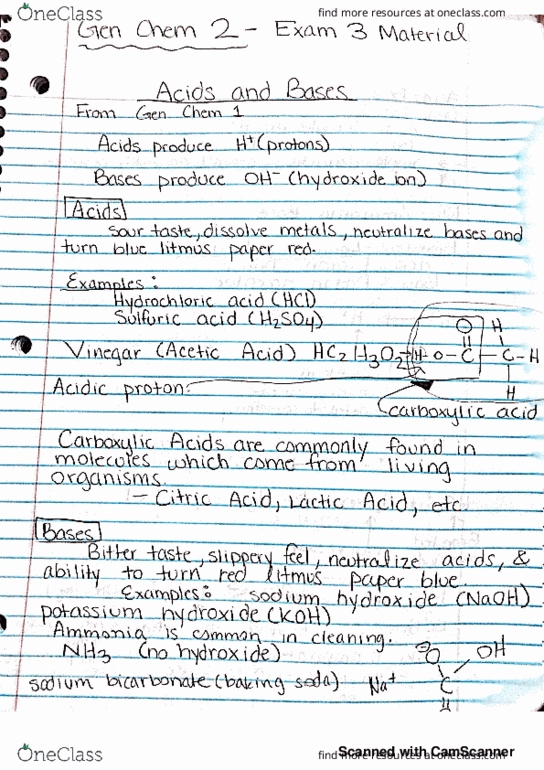 OneClass
find more resources at oneclass.com
Gen Chem 2 - Exam 3 Material
Acids and Bases
From Gen Chem 1
Acids produce H⁺ (protons)
Bases produce OH⁻ (hydroxide ion)
Acids
sour taste, dissolve metals, neutralize bases and
turn blue litmus paper red.
Examples:
Hydrochloric acid (HCl)
Sulfuric acid (H₂SO₄)
O H
Vinegar (Acetic Acid) HC₂H₃O₂ H-O-C-C-H
H
Acidic proton:
carboxylic acid
Carboxylic Acids are commonly found in
molecules which come from living
organisms.
- Citric Acid, Lactic Acid, etc.
Bases
Bitter taste, slippery feel, neutralize acids, &
ability to turn red litmus paper blue.
Examples: sodium hydroxide (NaOH)
potassium hydroxide (KOH)
Ammonia is common in cleaning.
NH₃ (no hydroxide)
O OH
sodium bicarbonate (baking soda) Na⁺ C
OneClass
find more resources at oneclass.com
Scanned with CamScanner